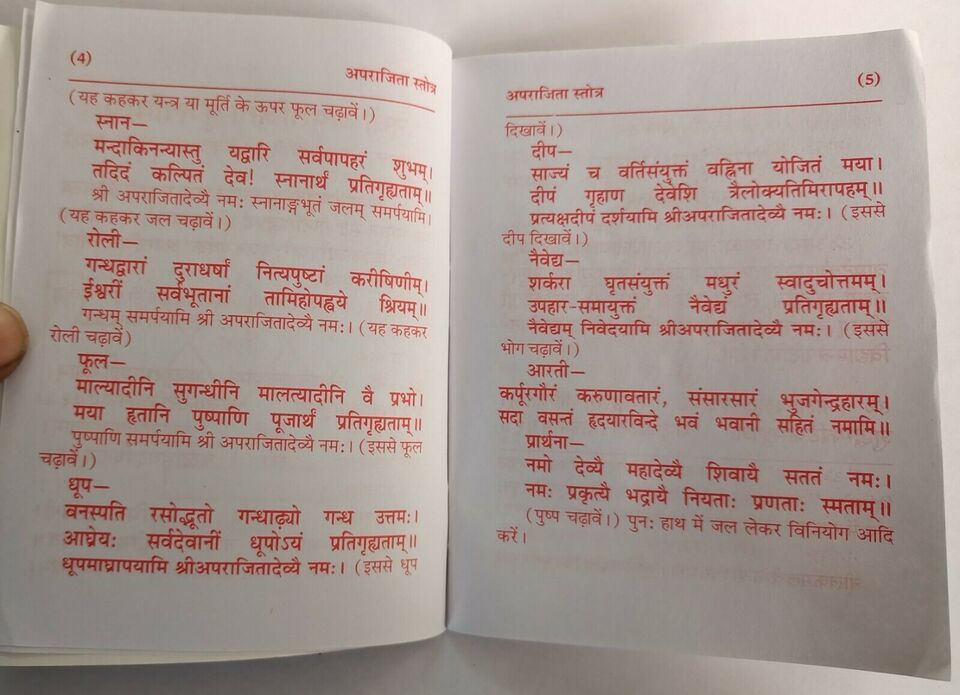 (4)
अपराजिता स्तोत्र
(यह कहकर यन्त्र या मूर्ति के ऊपर फूल चढ़ावें।)
स्नान—
मन्दाकिनन्यास्तु यद्वारि सर्वपापहरं शुभम्।
तदिदं कल्पितं देव! स्नानार्थं प्रतिगृह्यताम्॥
श्री अपराजितादेव्यै नमः स्नानाङ्गभूतं जलम् समर्पयामि।
(यह कहकर जल चढ़ावें।)
रोली—
गन्धद्वारां दुराधर्षां नित्यपुष्टां करीषिणीम्।
ईश्वरीं सर्वभूतानां तामिहोपह्वये श्रियम्॥
गन्धम् समर्पयामि श्री अपराजितादेव्यै नमः। (यह कहकर
रोली चढ़ावे)
फूल—
माल्यादीनि सुगन्धीनि मालत्यादीनि वै प्रभो।
मया हृतानि पुष्पाणि पूजार्थं प्रतिगृह्यताम्॥
पुष्पाणि समर्पयामि श्री अपराजितादेव्यै नमः। (इससे फूल
चढ़ावें।)
धूप—
वनस्पति रसोद्भूतो गन्धाढ्यो गन्ध उत्तमः।
आघ्रेयः सर्वदेवानीं धूपोऽयं प्रतिगृह्यताम्॥
धूपमाघ्रापयामि श्रीअपराजितादेव्यै नमः। (इससे धूप
अपराजिता स्तोत्र
(5)
दिखावें।)
दीप—
साज्यं च वर्तिसंयुक्तं वह्निना योजितं मया।
दीपं गृहाण देवेशि त्रैलोक्यतिमिरापहम्॥
प्रत्यक्षदीपं दर्शयामि श्रीअपराजितादेव्यै नमः। (इससे
दीप दिखावें।)
नैवेद्य—
शर्करा घृतसंयुक्तं मधुरं स्वादुचोत्तमम्।
उपहार-समायुक्तं नैवेद्यं प्रतिगृह्यताम्॥
नैवेद्यम् निवेदयामि श्रीअपराजितादेव्यै नमः। (इससे
भोग चढ़ावें।)
आरती—
कर्पूरगौरं करुणावतारं, संसारसारं भुजगेन्द्रहारम्।
सदा वसन्तं हृदयारविन्दे भवं भवानी सहितं नमामि॥
प्रार्थना—
नमो देव्यै महादेव्यै शिवायै सततं नमः।
नमः प्रकृत्यै भद्रायै नियताः प्रणताः स्मताम्॥
(पुष्प चढ़ावें।) पुनः हाथ में जल लेकर विनियोग आदि
करें।